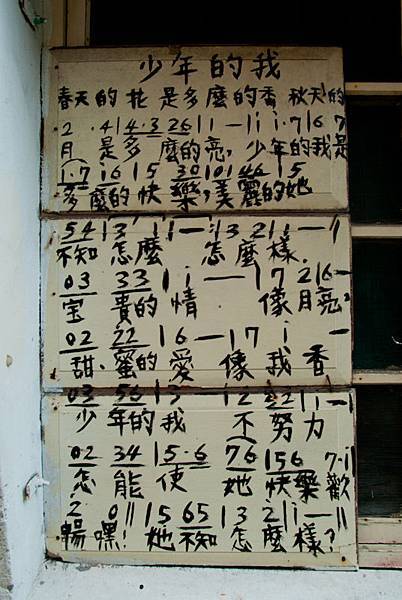 少年的我
春天的花 是多麼的香 秋天的
2 · 41 4·3 26 1 1 — 1 i i·7 16 7
月 是多 麼的亮, 少年的我是
1·7 16 15 30 101 46 15
多麼的快樂, 美麗的她
54 13 1 1 — 1 3 2 1 1 — 1
不知怎麼 怎麼樣
03 33 1 i — 17 216 —
寶 貴的情 像月亮
02 22 1 6 — 17 i —
甜 蜜的愛 像我香
03 56 13 12 22 1 i — 1
少年的我 不努力
02 34 15·6 76 156 7·i
怎 能 使 她 快樂 歡
2 0 || 15 65 13 2 1 i — ||
暢嘿! 她不知怎麼樣?